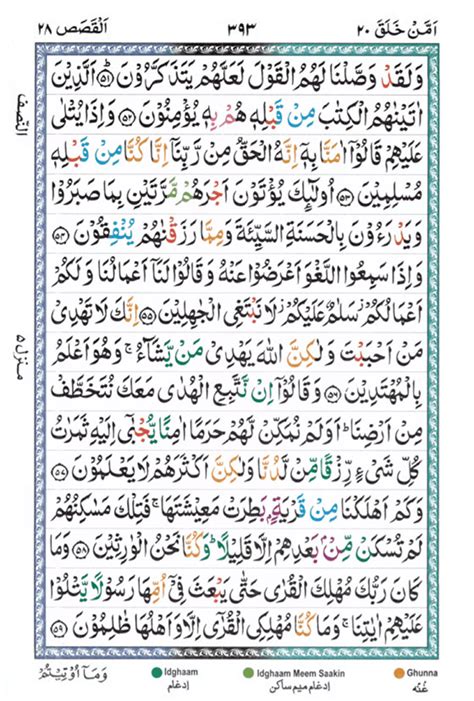 اَمَّنْ خَلَقَ ٢٠
٣٩٣
اَلْقَصَص ٢٨
وَلَقَدْ وَصَّلْنَا لَهُمُ الْقَوْلَ لَعَلَّهُمْ يَتَذَكَّرُوْنَ ﴿۵۱﴾ اَلَّذِيْنَ
اٰتَيْنٰهُمُ الْكِتٰبَ مِنْ قَبْلِهٖ هُمْ بِهٖ يُؤْمِنُوْنَ ﴿۵۲﴾ وَاِذَا يُتْلٰى
عَلَيْهِمْ قَالُوْۤا اٰمَنَّا بِهٖۤ اِنَّهُ الْحَقُّ مِنْ رَّبِّنَاۤ اِنَّا كُنَّا مِنْ قَبْلِهٖ
مُسْلِمِيْنَ ﴿۵۳﴾ اُولٰٓئِكَ يُؤْتَوْنَ اَجْرَهُمْ مَّرَّتَيْنِ بِمَا صَبَرُوْا
وَيَدْرَءُوْنَ بِالْحَسَنَةِ السَّيِّئَةَ وَمِمَّا رَزَقْنٰهُمْ يُنْفِقُوْنَ ﴿۵۴﴾
وَاِذَا سَمِعُوا اللَّغْوَ اَعْرَضُوْا عَنْهُ وَقَالُوْا لَنَاۤ اَعْمَالُنَا وَلَكُمْ
اَعْمَالُكُمْ سَلٰمٌ عَلَيْكُمْ لَا نَبْتَغِى الْجٰهِلِيْنَ ﴿۵۵﴾ اِنَّكَ لَا تَهْدِىْ
مَنْ اَحْبَبْتَ وَلٰكِنَّ اللّٰهَ يَهْدِىْ مَنْ يَّشَآءُ ۚ وَهُوَ اَعْلَمُ
بِالْمُهْتَدِيْنَ ﴿۵۶﴾ وَقَالُوْۤا اِنْ نَّتَّبِعِ الْهُدٰى مَعَكَ نُتَخَطَّفْ
مِنْ اَرْضِنَا ؕ اَوَلَمْ نُمَكِّنْ لَّهُمْ حَرَمًا اٰمِنًا يُّجْبٰٓى اِلَيْهِ ثَمَرٰتُ
كُلِّ شَىْءٍ رِّزْقًا مِّنْ لَّدُنَّا وَلٰكِنَّ اَكْثَرَهُمْ لَا يَعْلَمُوْنَ ﴿۵۷﴾
وَكَمْ اَهْلَكْنَا مِنْ قَرْيَةٍۭ بَطِرَتْ مَعِيْشَتَهَا ۚ فَتِلْكَ مَسٰكِنُهُمْ
لَمْ تُسْكَنْ مِّنْۢ بَعْدِهِمْ اِلَّا قَلِيْلًا ؕ وَكُنَّا نَحْنُ الْوٰرِثِيْنَ ﴿۵۸﴾ وَمَا
كَانَ رَبُّكَ مُهْلِكَ الْقُرٰى حَتّٰى يَبْعَثَ فِىْۤ اُمِّهَا رَسُوْلًا يَّتْلُوْا
عَلَيْهِمْ اٰيٰتِنَا ۚ وَمَا كُنَّا مُهْلِكِى الْقُرٰٓى اِلَّا وَاَهْلُهَا ظٰلِمُوْنَ ﴿۵۹﴾
النّصف
منزل ۵
وَمَاۤ اُوْتِيْتُمْ
Idghaam
ادغام
Idghaam Meem Saakin
ادغام میم ساکن
Ghunna
غنّه